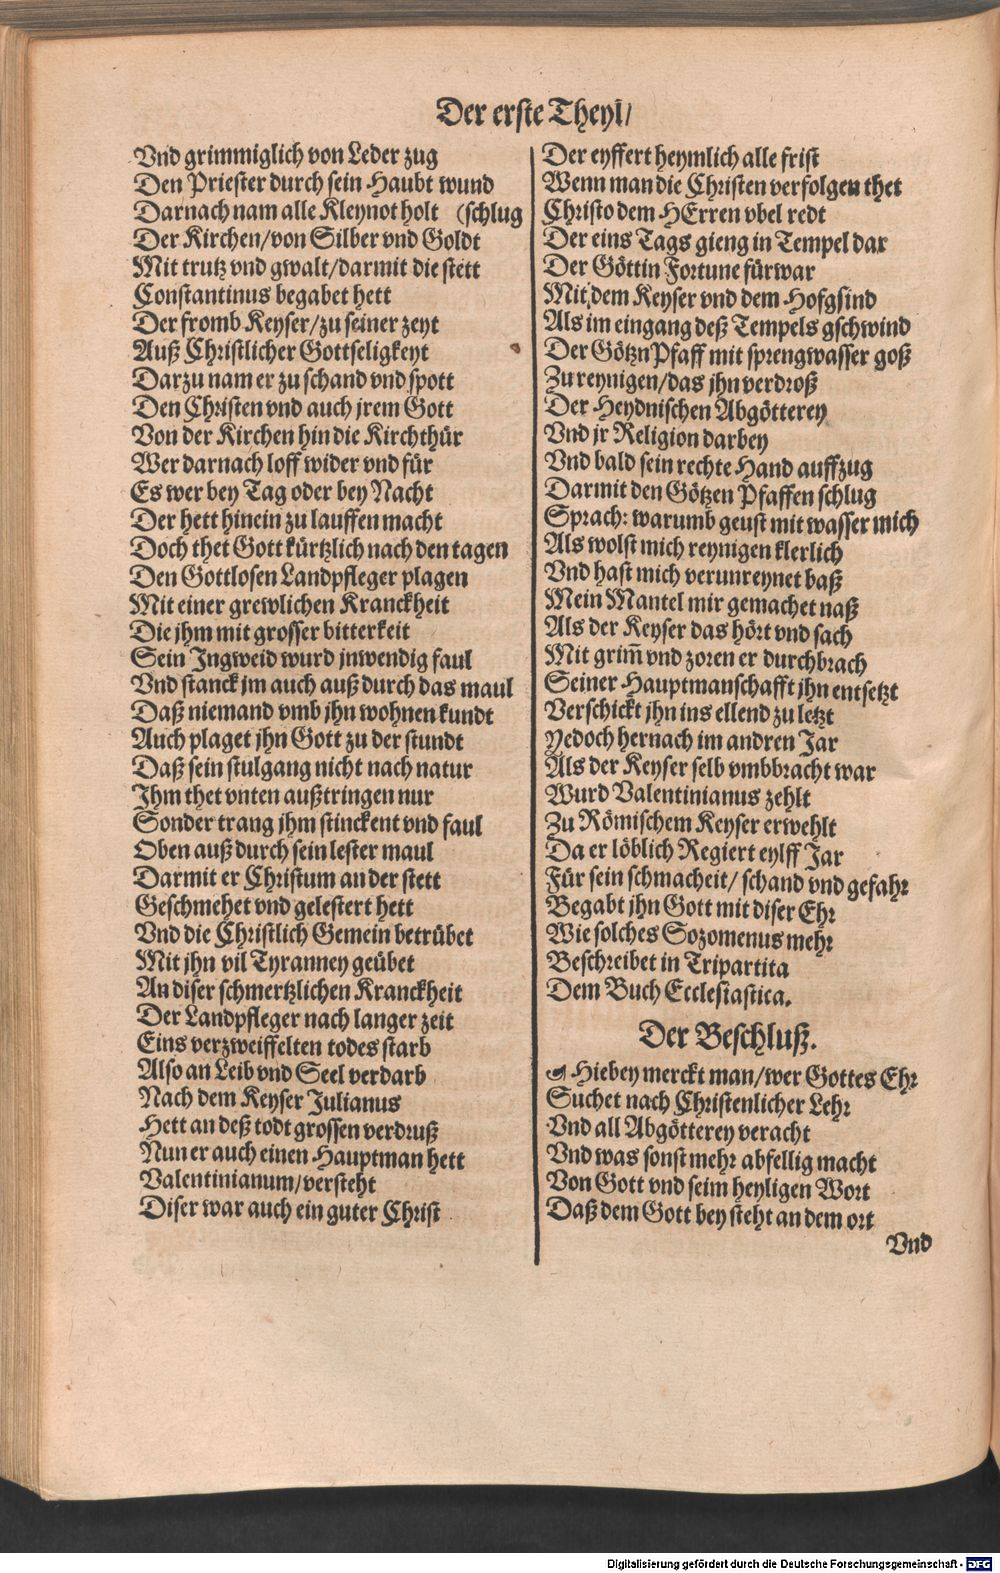 Der erste Theyl/
Vnd grimmiglich von Leder zug
Den Priester durch sein Haubt wund
Darnach nam alle Kleynot holt (schlug
Der Kirchen/von Silber vnd Goldt
Mit trutz vnd gwalt/darmit die stett
Constantinus begabet hett
Der fromb Keyser/zu seiner zeyt
Auß Christlicher Gottseligkeyt
Darzu nam er zu schand vnd spott
Den Christen vnd auch jrem Gott
Von der Kirchen hin die Kirchthür
Wer darnach loff wider vnd für
Es wer bey Tag oder bey Nacht
Der hett hinein zu lauffen macht
Doch thet Gott kürtzlich nach den tagen
Den Gottlosen Landpfleger plagen
Mit einer grewlichen Kranckheit
Die jhm mit grosser bitterkeit
Sein Ingweid wurd jnwendig faul
Vnd stanck jm auch auß durch das maul
Daß niemand vmb jhn wohnen kundt
Auch plaget jhn Gott zu der stundt
Daß sein stulgang nicht nach natur
Ihm thet vnten außtringen nur
Sonder trang jhm stinckent vnd faul
Oben auß durch sein lester maul
Darmit er Christum an der stett
Geschmehet vnd gelestert hett
Vnd die Christlich Gemein betrübet
Mit jhn vil Tyranney geübet
An diser schmertzlichen Kranckheit
Der Landpfleger nach langer zeit
Eins verzweiffelten todes starb
Also an Leib vnd Seel verdarb
Nach dem Keyser Julianus
Hett an deß todt grossen verdruß
Nun er auch einen Hauptman hett
Valentinianum/versteht
Diser war auch ein guter Christ
Der eyffert heymlich alle frist
Wenn man die Christen verfolgen thet
Christo dem HErren vbel redt
Der eins Tags gieng in Tempel dar
Der Göttin Fortune fürwar
Mit dem Keyser vnd dem Hofgsind
Als im eingang deß Tempels gschwind
Der Götzn Pfaff mit sprengwasser goß
Zu reynigen/das jhn verdroß
Der Heydnischen Abgötterey
Vnd jr Religion darbey
Vnd bald sein rechte Hand auffzug
Darmit den Götzen Pfaffen schlug
Sprach: warumb geust mit wasser mich
Als wolst mich reynigen klerlich
Vnd hast mich verunreynet baß
Mein Mantel mir gemachet naß
Als der Keyser das hört vnd sach
Mit grim̃ vnd zoren er durchbrach
Seiner Hauptmanschafft jhn entsetzt
Verschickt jhn ins ellend zu letzt
Yedoch hernach im andren Jar
Als der Keyser selb vmbbracht war
Wurd Valentinianus zehlt
Zu Römischem Keyser erwehlt
Da er löblich Regiert eylff Jar
Für sein schmacheit/ schand vnd gefahr
Begabt jhn Gott mit diser Ehr
Wie solches Sozomenus mehr
Beschreibet in Tripartita
Dem Buch Ecclesiastica.
Der Beschluß.
☙ Hiebey merckt man/wer Gottes Ehr
Suchet nach Christenlicher Lehr
Vnd all Abgötterey veracht
Vnd was sonst mehr abfellig macht
Von Gott vnd seim heyligen Wort
Daß dem Gott bey steht an dem ort
Vnd
Digitalisierung gefördert durch die Deutsche Forschungsgemeinschaft - DFG